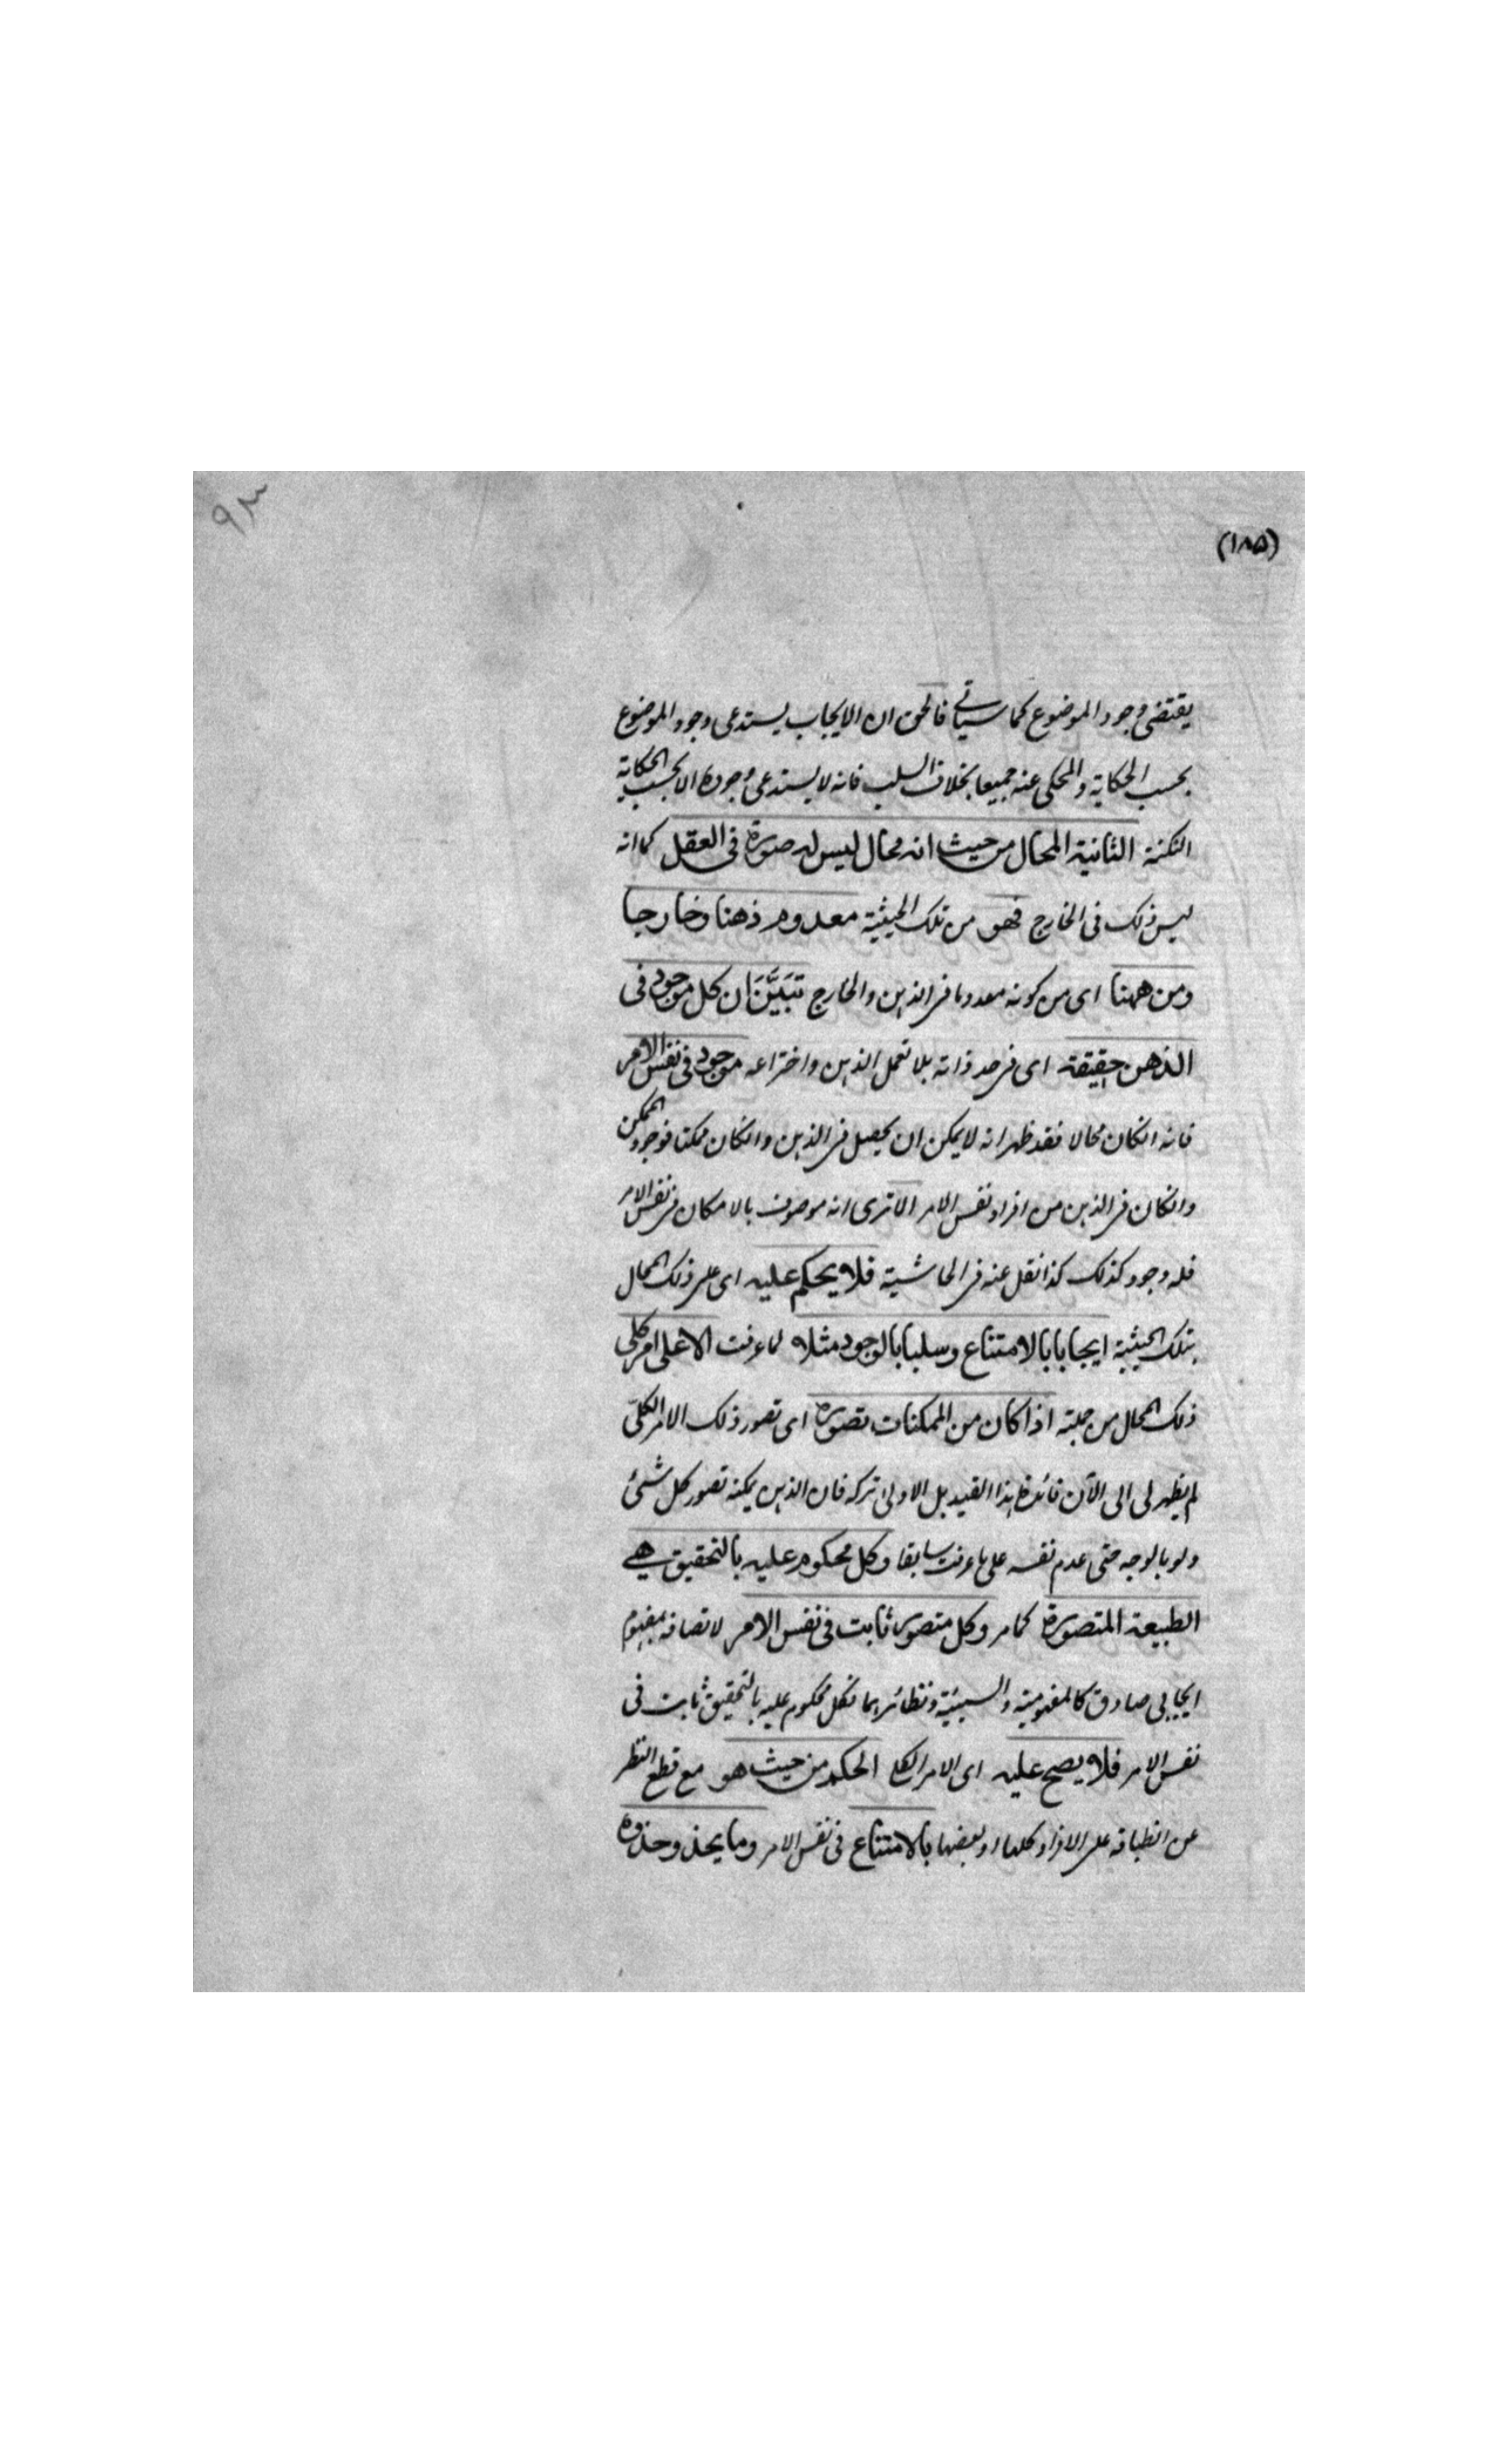 ٩٣
(١٨٥)
يقتضى وجود الموضوع كما سياتى فالحق ان الايجاب يستدعى وجود الموضوع
بحسب الحكاية والمحكى عنه جميعا بخلاف السلب فانه لا يستدعى وجوده الا بحسب الحكاية
النكتة الثانية المحال من حيث انه محال ليس له صورة فى العقل كما انه
ليس ذلك فى الخارج فهو من تلك الحيثية معدوم ذهنا وخارجا
ومن ههنا اى من كونه معدوما فى الذهن والخارج تبَيَّنَ ان كل موجود فى
الذهن حقيقة اى فى حد ذاته بلا تعمل الذهن واختراعه موجود فى نفس الامر
فانه انكان محالا فقد ظهر انه لا يمكن ان يحصل فى الذهن وانكان ممكنا فوجود الممكن
وانكان فى الذهن من افراد نفس الامر الا ترى انه موصوف بالامكان فى نفس الامر
فله وجود كذلك كذا نقل عنه فى الحاشية فلا يحكم عليه اى على ذلك المحال
بتلك الحيثية ايجابا بالامتناع وسلبا بالوجود مثلا لما عرفت الا على امر كلى
ذلك المحال من جملته اذا كان من الممكنات تصوره اى تصور ذلك الامر الكلىّ
لم يظهر لى الى الآن فائدة هذا القيد بل الاولى تركه فان الذهن يمكنه تصور كل شئ
ولو بالوجه حتى عدم نفسه على ما عرفت سابقا وكل محكوم عليه بالتحقيق هے
الطبيعة المتصورة كما مر وكل متصور ثابت فى نفس الامر لاتصافه بمفهوم
ايجابى صادق كالمفهومية والشيئية ونظائرهما فكل محكوم عليه بالتحقيق ثابت فى
نفس الامر فلا يصح عليه اى الامر الكلى الحكم من حيث هو مع قطع النظر
عن انطباقه على الافراد كلها او بعضها بالامتناع فى نفس الامر وما يحذو حذوه